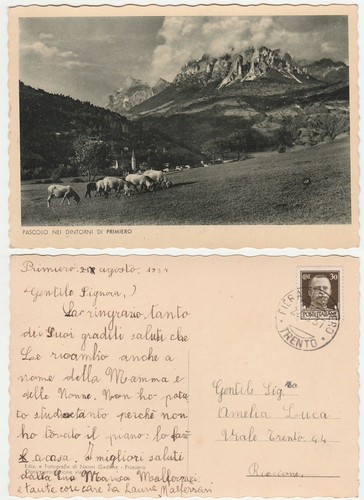 PASCOLO NEI DINTORNI DI PRIMIERO
Primiero agosto, 193
Gentile Signora,
La ringrazio tanto
dei Suoi graditi saluti che
Le ricambio anche a
nome della Mamma e
delle Nonne. Non ho po-
tuto studiare tanto perchè non
ho trovato il piano: lo farò
a casa. I migliori saluti
dalla Sua Marisa
e tante cose care da
Ediz. e Fotografia di Nanni Gadenz - Primiero
30
POSTE ITALIANE
FIERA
TRENTO
Gentile Sig.ra
Amelia Luca
Viale Trento 44
Riccione